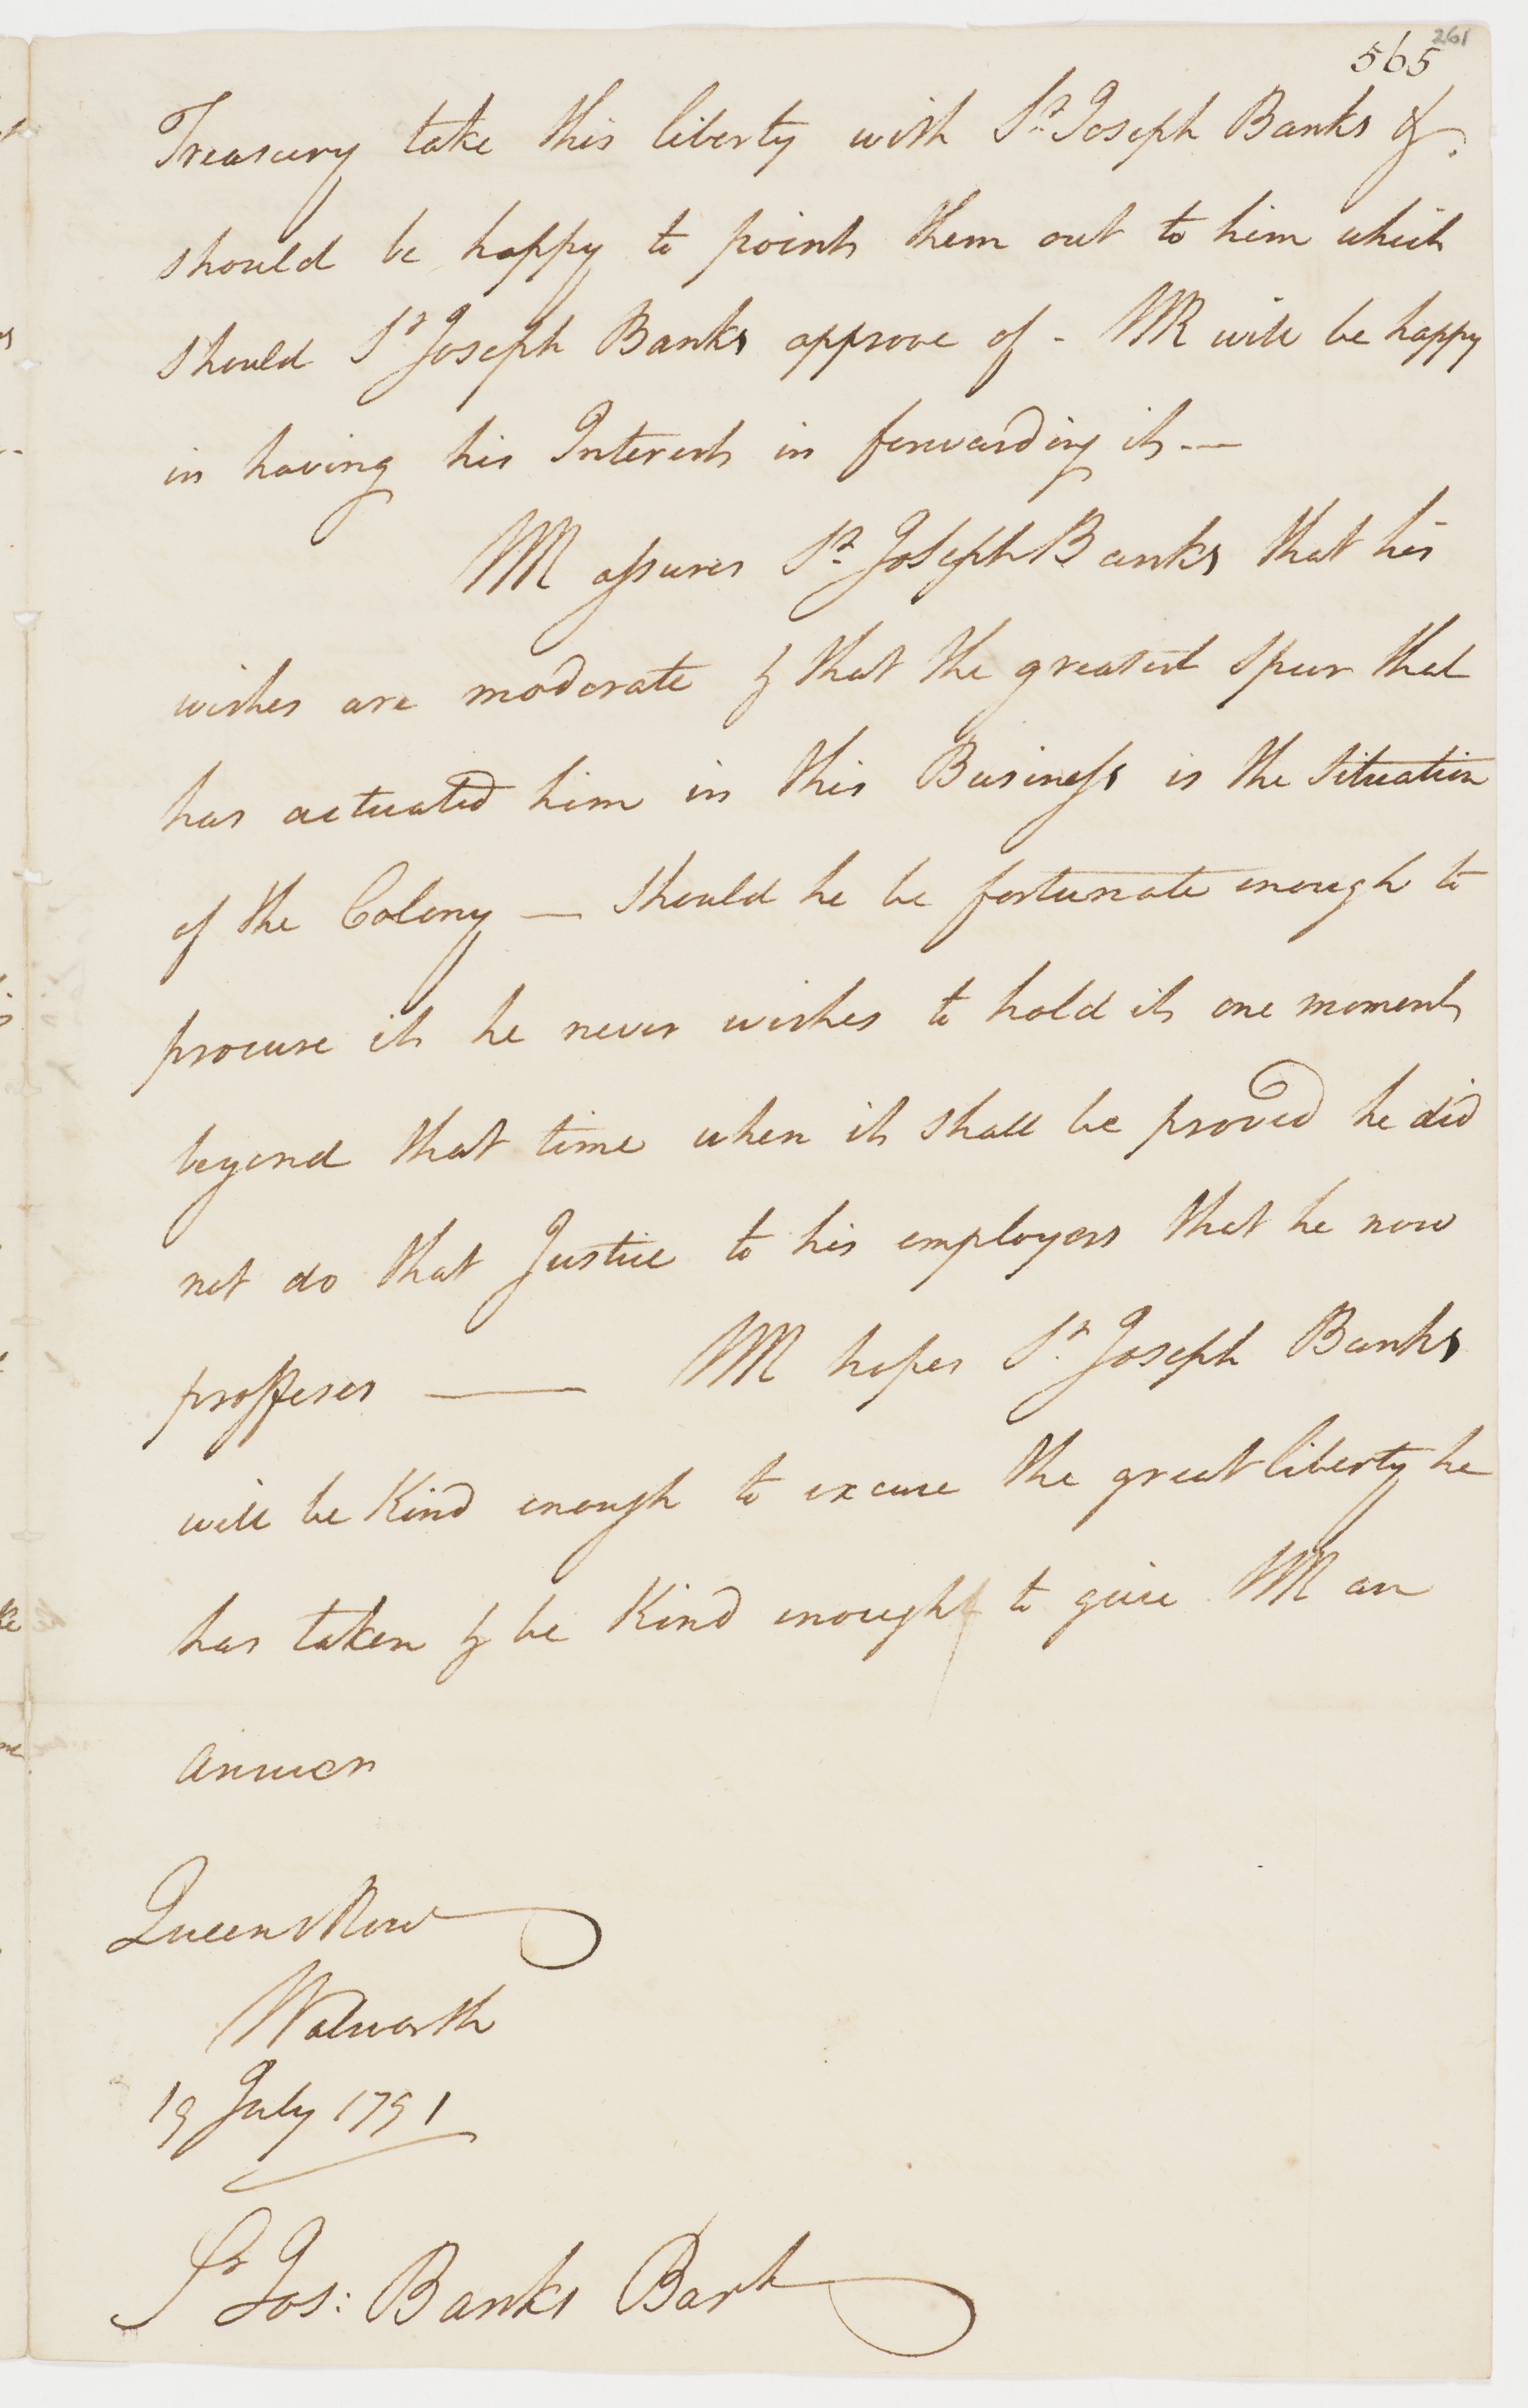 261
565
Treasury take this liberty with Sr. Joseph Banks &.
should be happy to point them out to him which
should Sr Joseph Banks approve of - WR will be happy
in having his Interest in forwarding it —
WR assures Sr. Joseph Banks that his
wishes are moderate & that the greatest spur that
has actuated him in this Business is the situation
of the Colony — should he be fortunate enough to
procure it he never wishes to hold it one moment
beyond that time when it shall be proved he did
not do that Justice to his employers that he now
proffeses — WR hopes Sr. Joseph Banks
will be Kind enough to excuse the great liberty he
has taken & be Kind enough to give WR an
answer
Queens Row
Walworth
19 July 1791
Sr Jos: Banks Bart